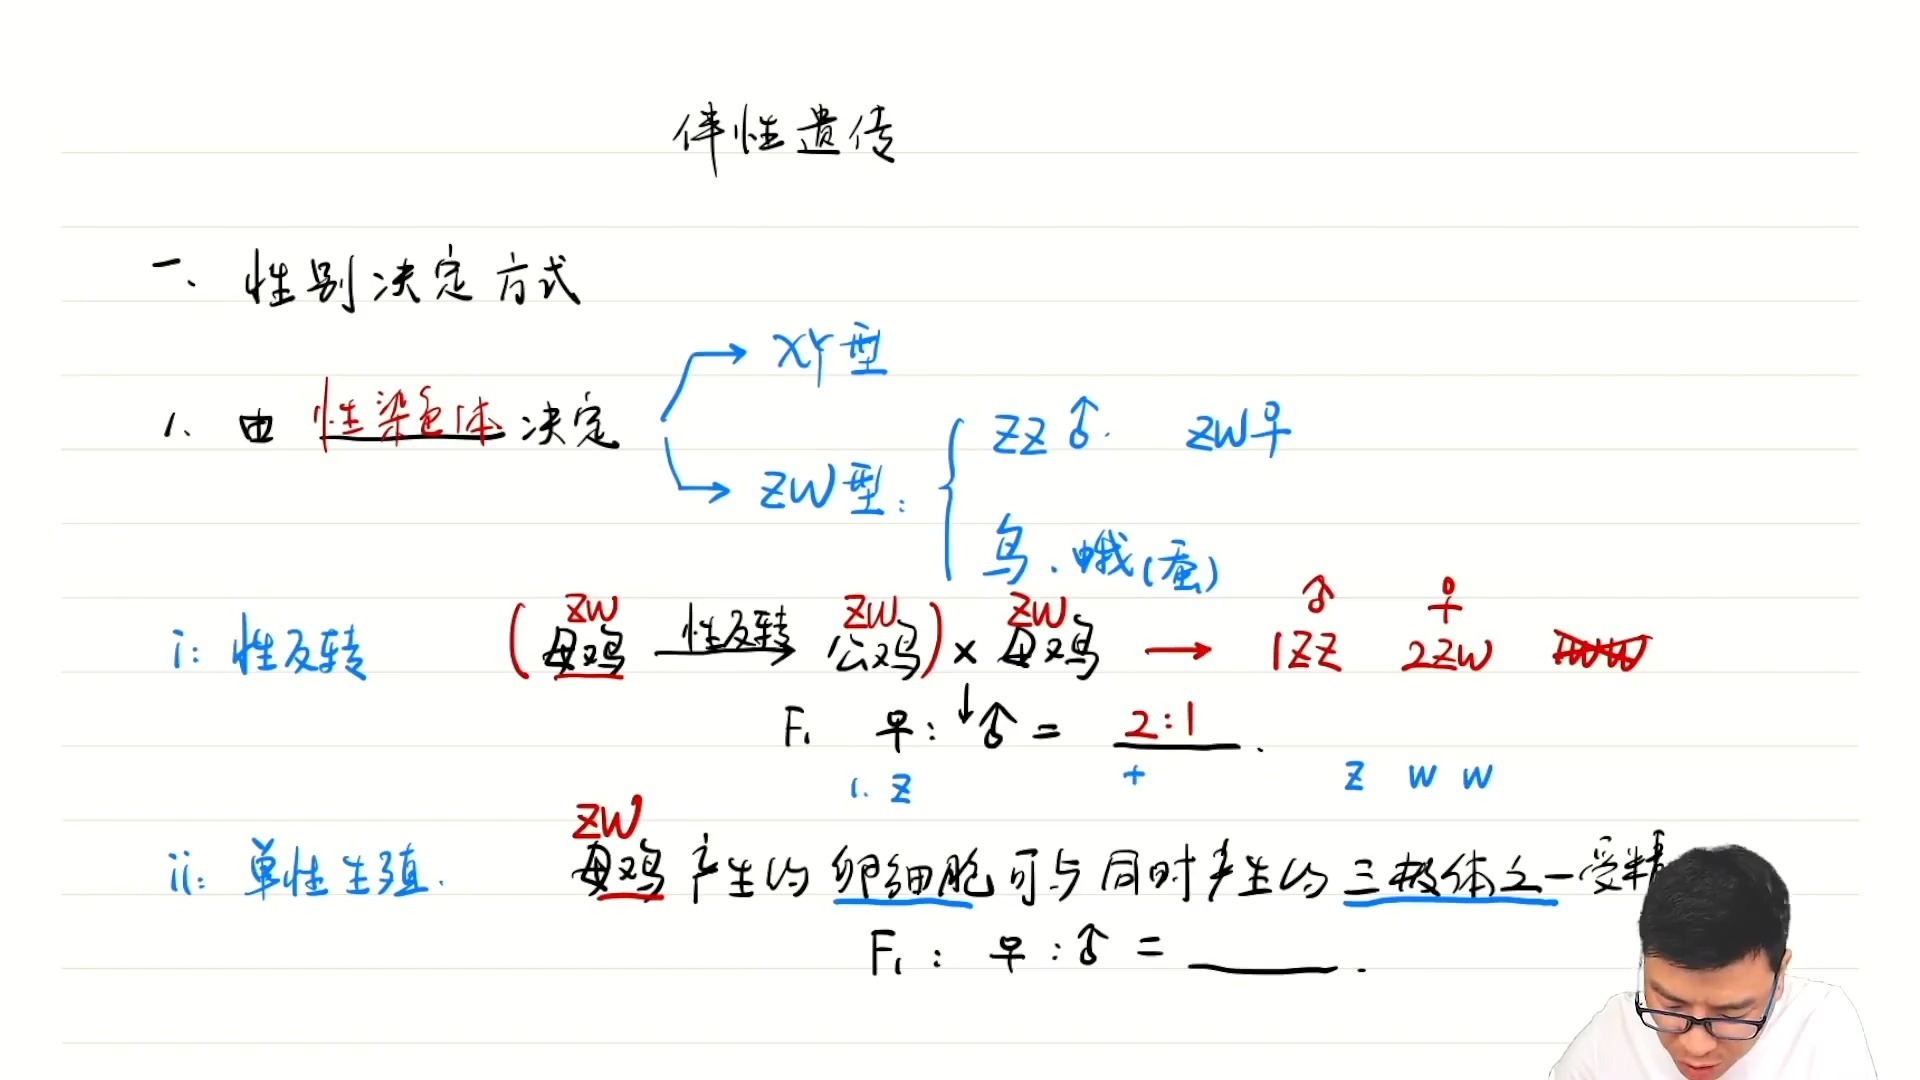 伴性遗传
一、性别决定方式
XY型
1、由 性染色体 决定
ZZ♂. ZW♀
ZW型:
鸟.蛾(蚕)
ZW ZW ZW ♂ ♀
i: 性反转 (母鸡 性反转→ 公鸡) × 母鸡 → 1ZZ 2ZW
↓
F₁ ♀:♂ = 2:1.
1. Z + Z W W
ZW
ii: 单性生殖. 母鸡产生的卵细胞可与同时产生的三极体之一受精
F₁: ♀:♂ = ____.